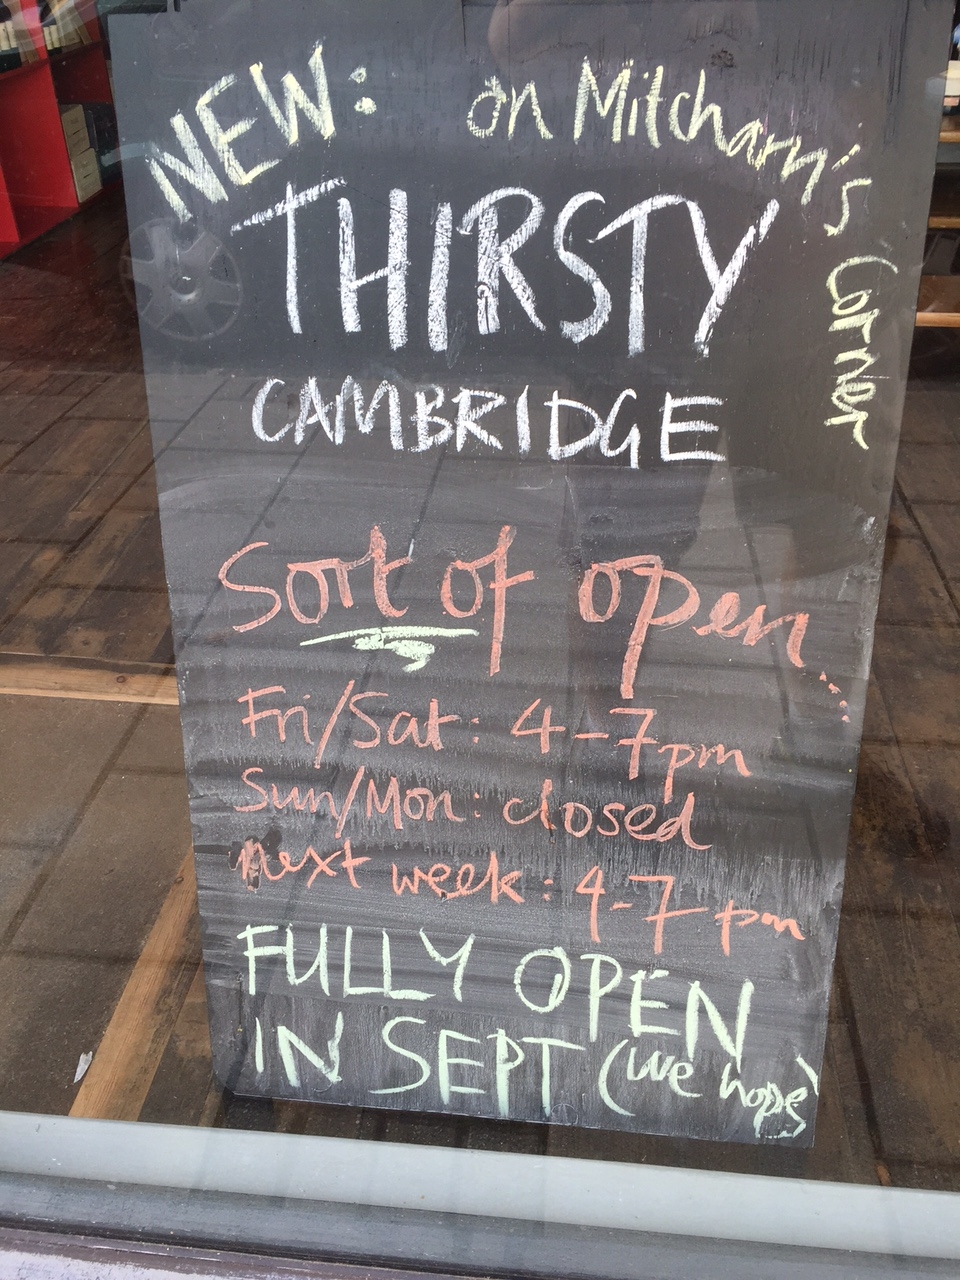 NEW: on Mitcham's Corner
THIRSTY
CAMBRIDGE
Sort of open...
Fri/Sat: 4-7pm
Sun/Mon: closed
next week: 4-7 pm
FULLY OPEN
IN SEPT (we hope)